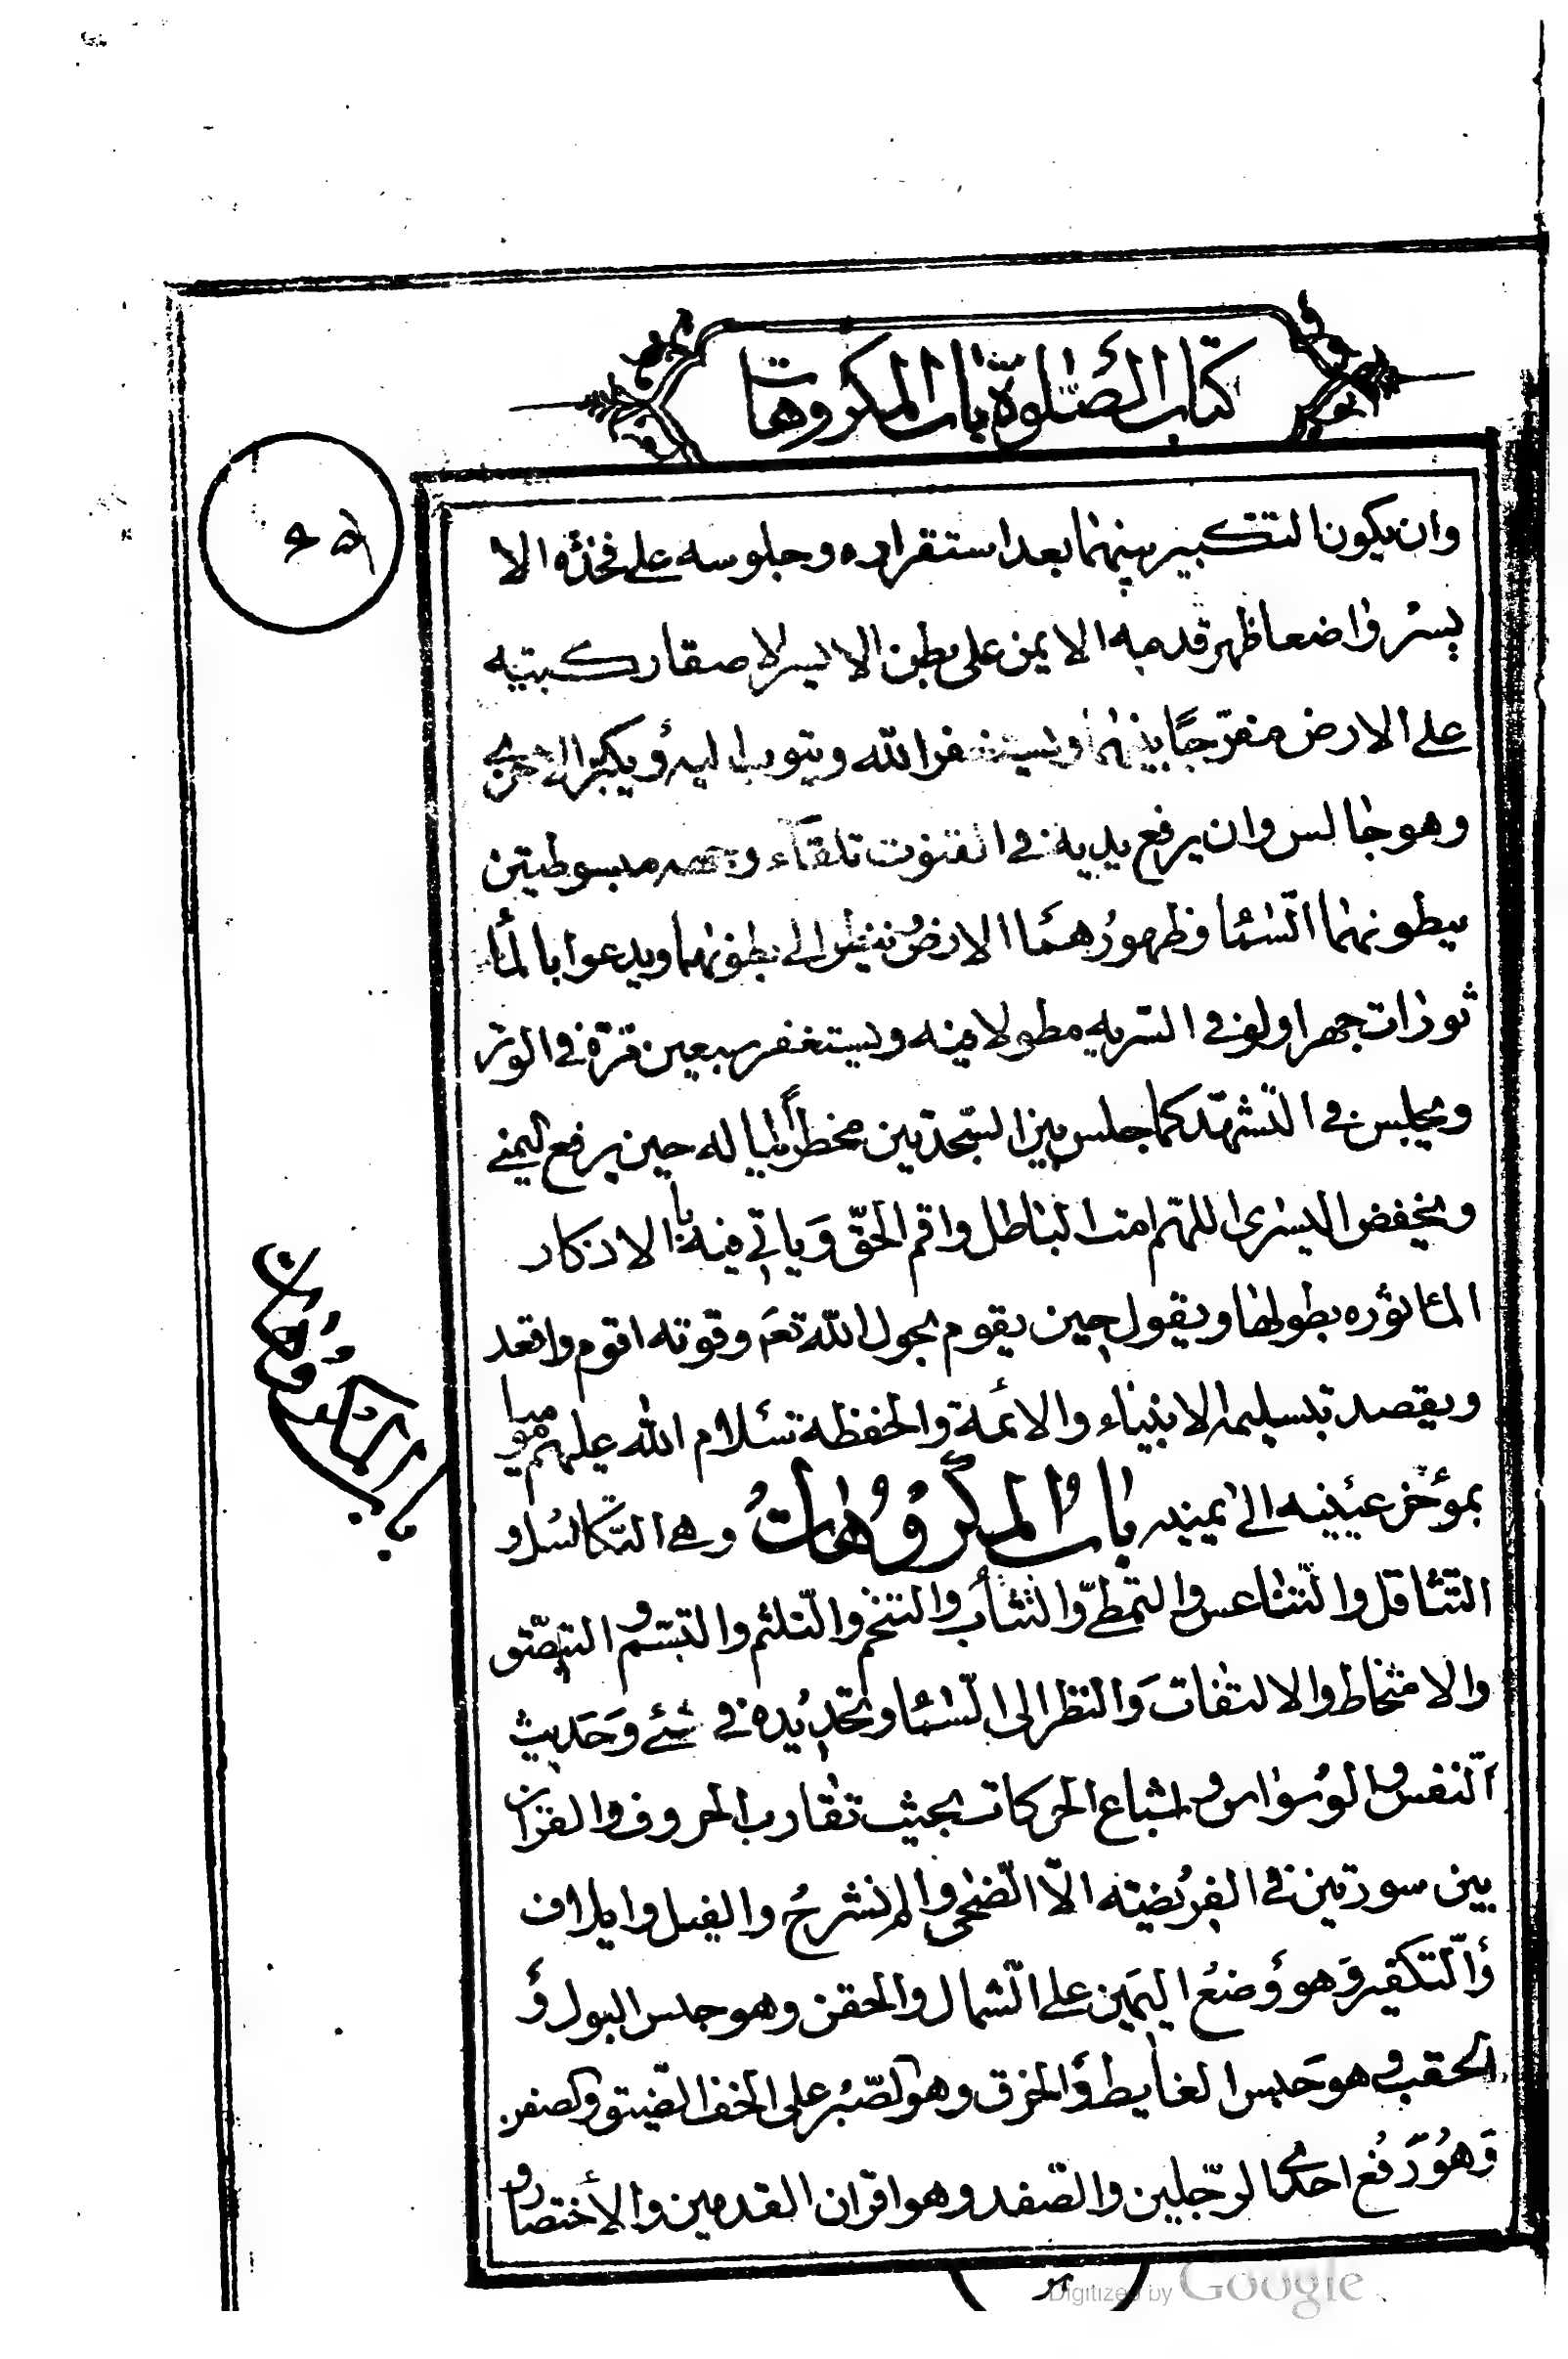 كتاب الصلوة باب المكروهات
وان يكون التكبير بينهما بعد استقراره وجلوسه على فخذه الا
يسر واضعا ظهر قدمه الايمن على بطن الايسر لاصقا ركبتيه
على الارض منفرجا بينهما ويستغفر الله ويتوب اليه ويكبر الاخرى
وهو جالس وان يرفع يديه في القنوت تلقاء وجهه مبسوطتين
ببطونهما السماء وظهورهما الارض ينظر الى بطونهما ويدعوا بالما
ثورات جهرا ولو في السريه مطولا فيه ويستغفر سبعين مرة في الوتر
ويجلس في التشهد كما جلس بين السجدتين مخطرا بباله حين يرفع اليمنى
ويخفض اليسرى اللهم امت الباطل واقم الحق وياتي فيه بالاذكار
الماثوره بطولها ويقول حين يقوم بحول الله تعه وقوته اقوم واقعد
ويقصد بتسليمه الانبياء والائمة والحفظة سلام الله عليهم موميا
بمؤخر عينيه الى يمينه باب المكروهات وهي التكاسل و
التثاقل والتناعس والتمطي والتثأب والتنخم والتلثم والتبسم والتبصق
والامتخاط والالتفات والنظر الى السماء وتحديده في شئ وحديث
النفس والوسواس واشباع الحركات بحيث تقارب الحروف والقران
بين سورتين في الفريضته الا الضحى والم نشرح والفيل وايلاف
والتكفير وهو وضع اليمين على الشمال والحقن وهو حبس البول و
الحقب وهو حبس الغايط والخرق وهو الصبر على الخف الضيق والصفن
وهو رفع احدى الرجلين والصفد وهو اقران القدمين والاختصار و
باب المكروهات
Digitized by Google